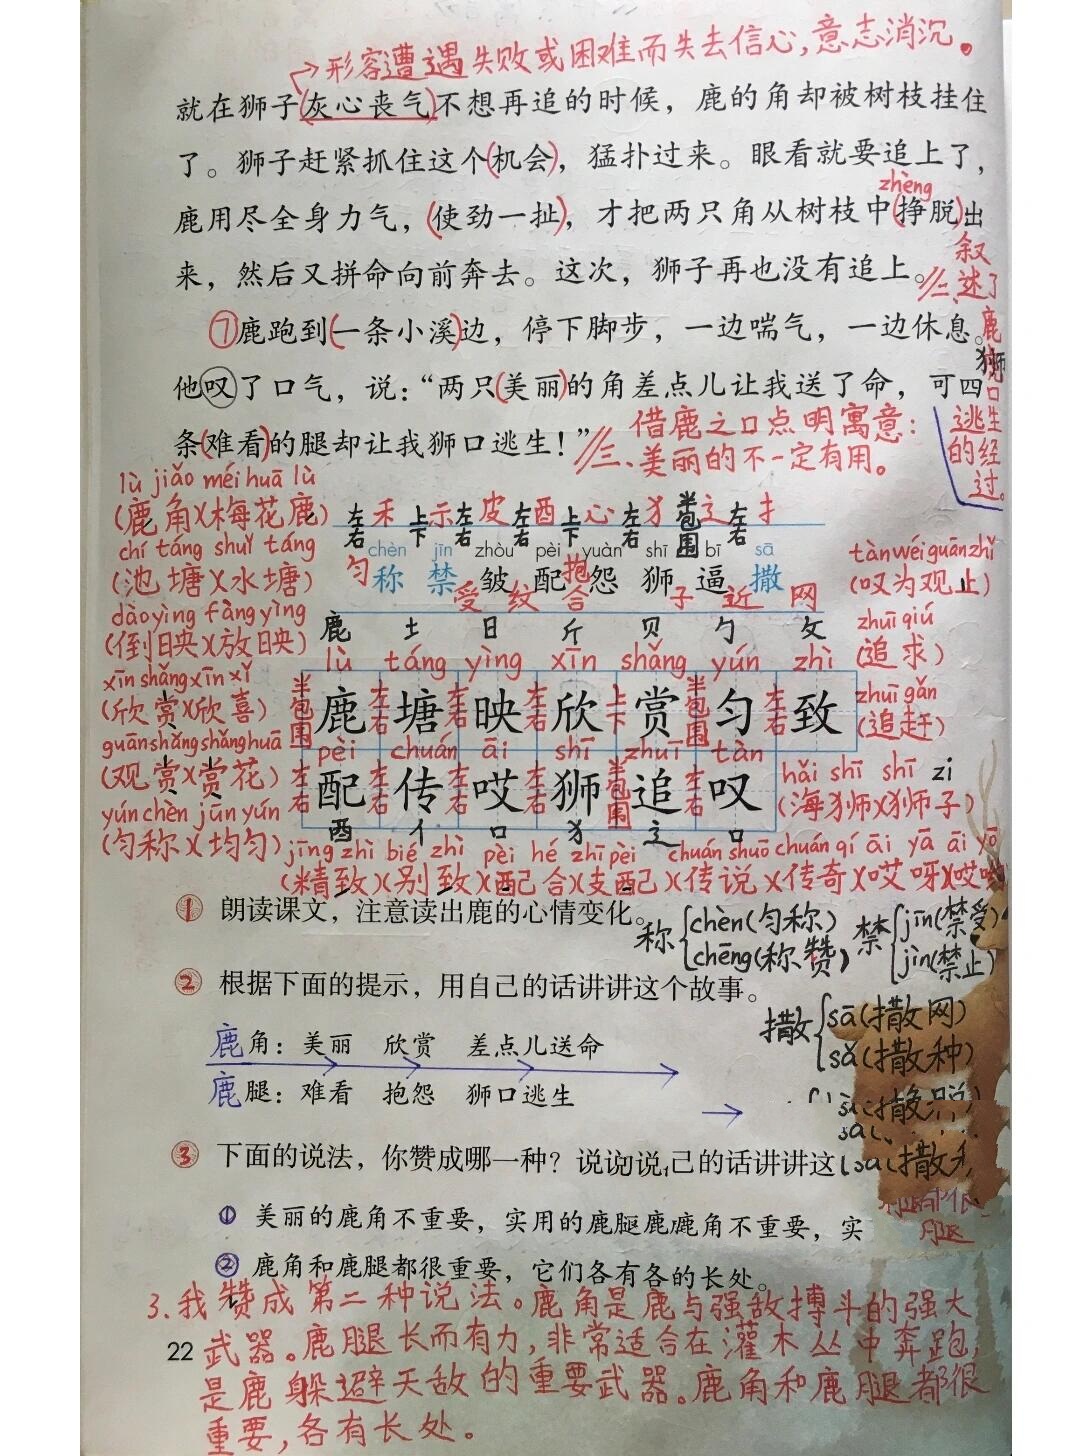 形容遭遇失败或困难而失去信心，意志消沉。
就在狮子(灰心丧气)不想再追的时候，鹿的角却被树枝挂住
了。狮子赶紧抓住这个(机会)，猛扑过来。眼看就要追上了，
zhèng
鹿用尽全身力气，(使劲一扯)，才把两只角从树枝中(挣脱)出
来，然后又拼命向前奔去。这次，狮子再也没有追上。
二、叙述了鹿狮口逃生的经过。
⑦鹿跑到(一条小溪)边，停下脚步，一边喘气，一边休息。
他叹了口气，说：“两只(美丽)的角差点儿让我送了命，可四
条(难看)的腿却让我狮口逃生！”
三、借鹿之口点明寓意：
美丽的不一定有用。
lù jiǎo méi huā lù
(鹿角)(梅花鹿)
chí táng shuǐ táng
(池塘)(水塘)
dào yìng fàng yìng
(倒映)(放映)
xīn shǎng xīn xǐ
(欣赏)(欣喜)
guān shǎng shǎng huā
(观赏)(赏花)
yún chèn jūn yún
(匀称)(均匀)
左右 禾 上下 示 左右 皮 左右 酉 上下 心 左右 犭 半包围 辶 左右 扌
chèn jīn zhòu pèi yuàn shī bī sā
匀称 禁 皱 配 抱怨 狮 逼 撒
受 纹 合 子 近 网
鹿 土 日 斤 贝 勹 攵
lù táng yìng xīn shǎng yún zhì
半包围 鹿 左右 塘 左右 映 左右 欣 上下 赏 半包围 匀 左右 致
pèi chuán āi shī zhuī tàn
左右 配 左右 传 左右 哎 左右 狮 半包围 追 左右 叹
酉 亻 口 犭 辶 口
tàn wéi guān zhǐ
(叹为观止)
zhuī qiú
(追求)
zhuī gǎn
(追赶)
hǎi shī shī zi
(海狮)(狮子)
jīng zhì bié zhì pèi hé zhī pèi chuán shuō chuán qí āi yā āi yō
(精致)(别致)(配合)(支配)(传说)(传奇)(哎呀)(哎哟
1 朗读课文，注意读出鹿的心情变化。
称 chèn(匀称)
chēng(称赞)
禁 jīn(禁受)
jìn(禁止)
2 根据下面的提示，用自己的话讲讲这个故事。
撒 sā(撒网)
sǎ(撒种)
鹿角：美丽 欣赏 差点儿送命
鹿腿：难看 抱怨 狮口逃生
3 下面的说法，你赞成哪一种？说说
① 美丽的鹿角不重要，实用的鹿
② 鹿角和鹿腿都很重要，它们各有各的长处。
3.我赞成第二种说法。鹿角是鹿与强敌搏斗的强大
武器。鹿腿长而有力，非常适合在灌木丛中奔跑，
是鹿躲避天敌的重要武器。鹿角和鹿腿都很
重要，各有长处。
22